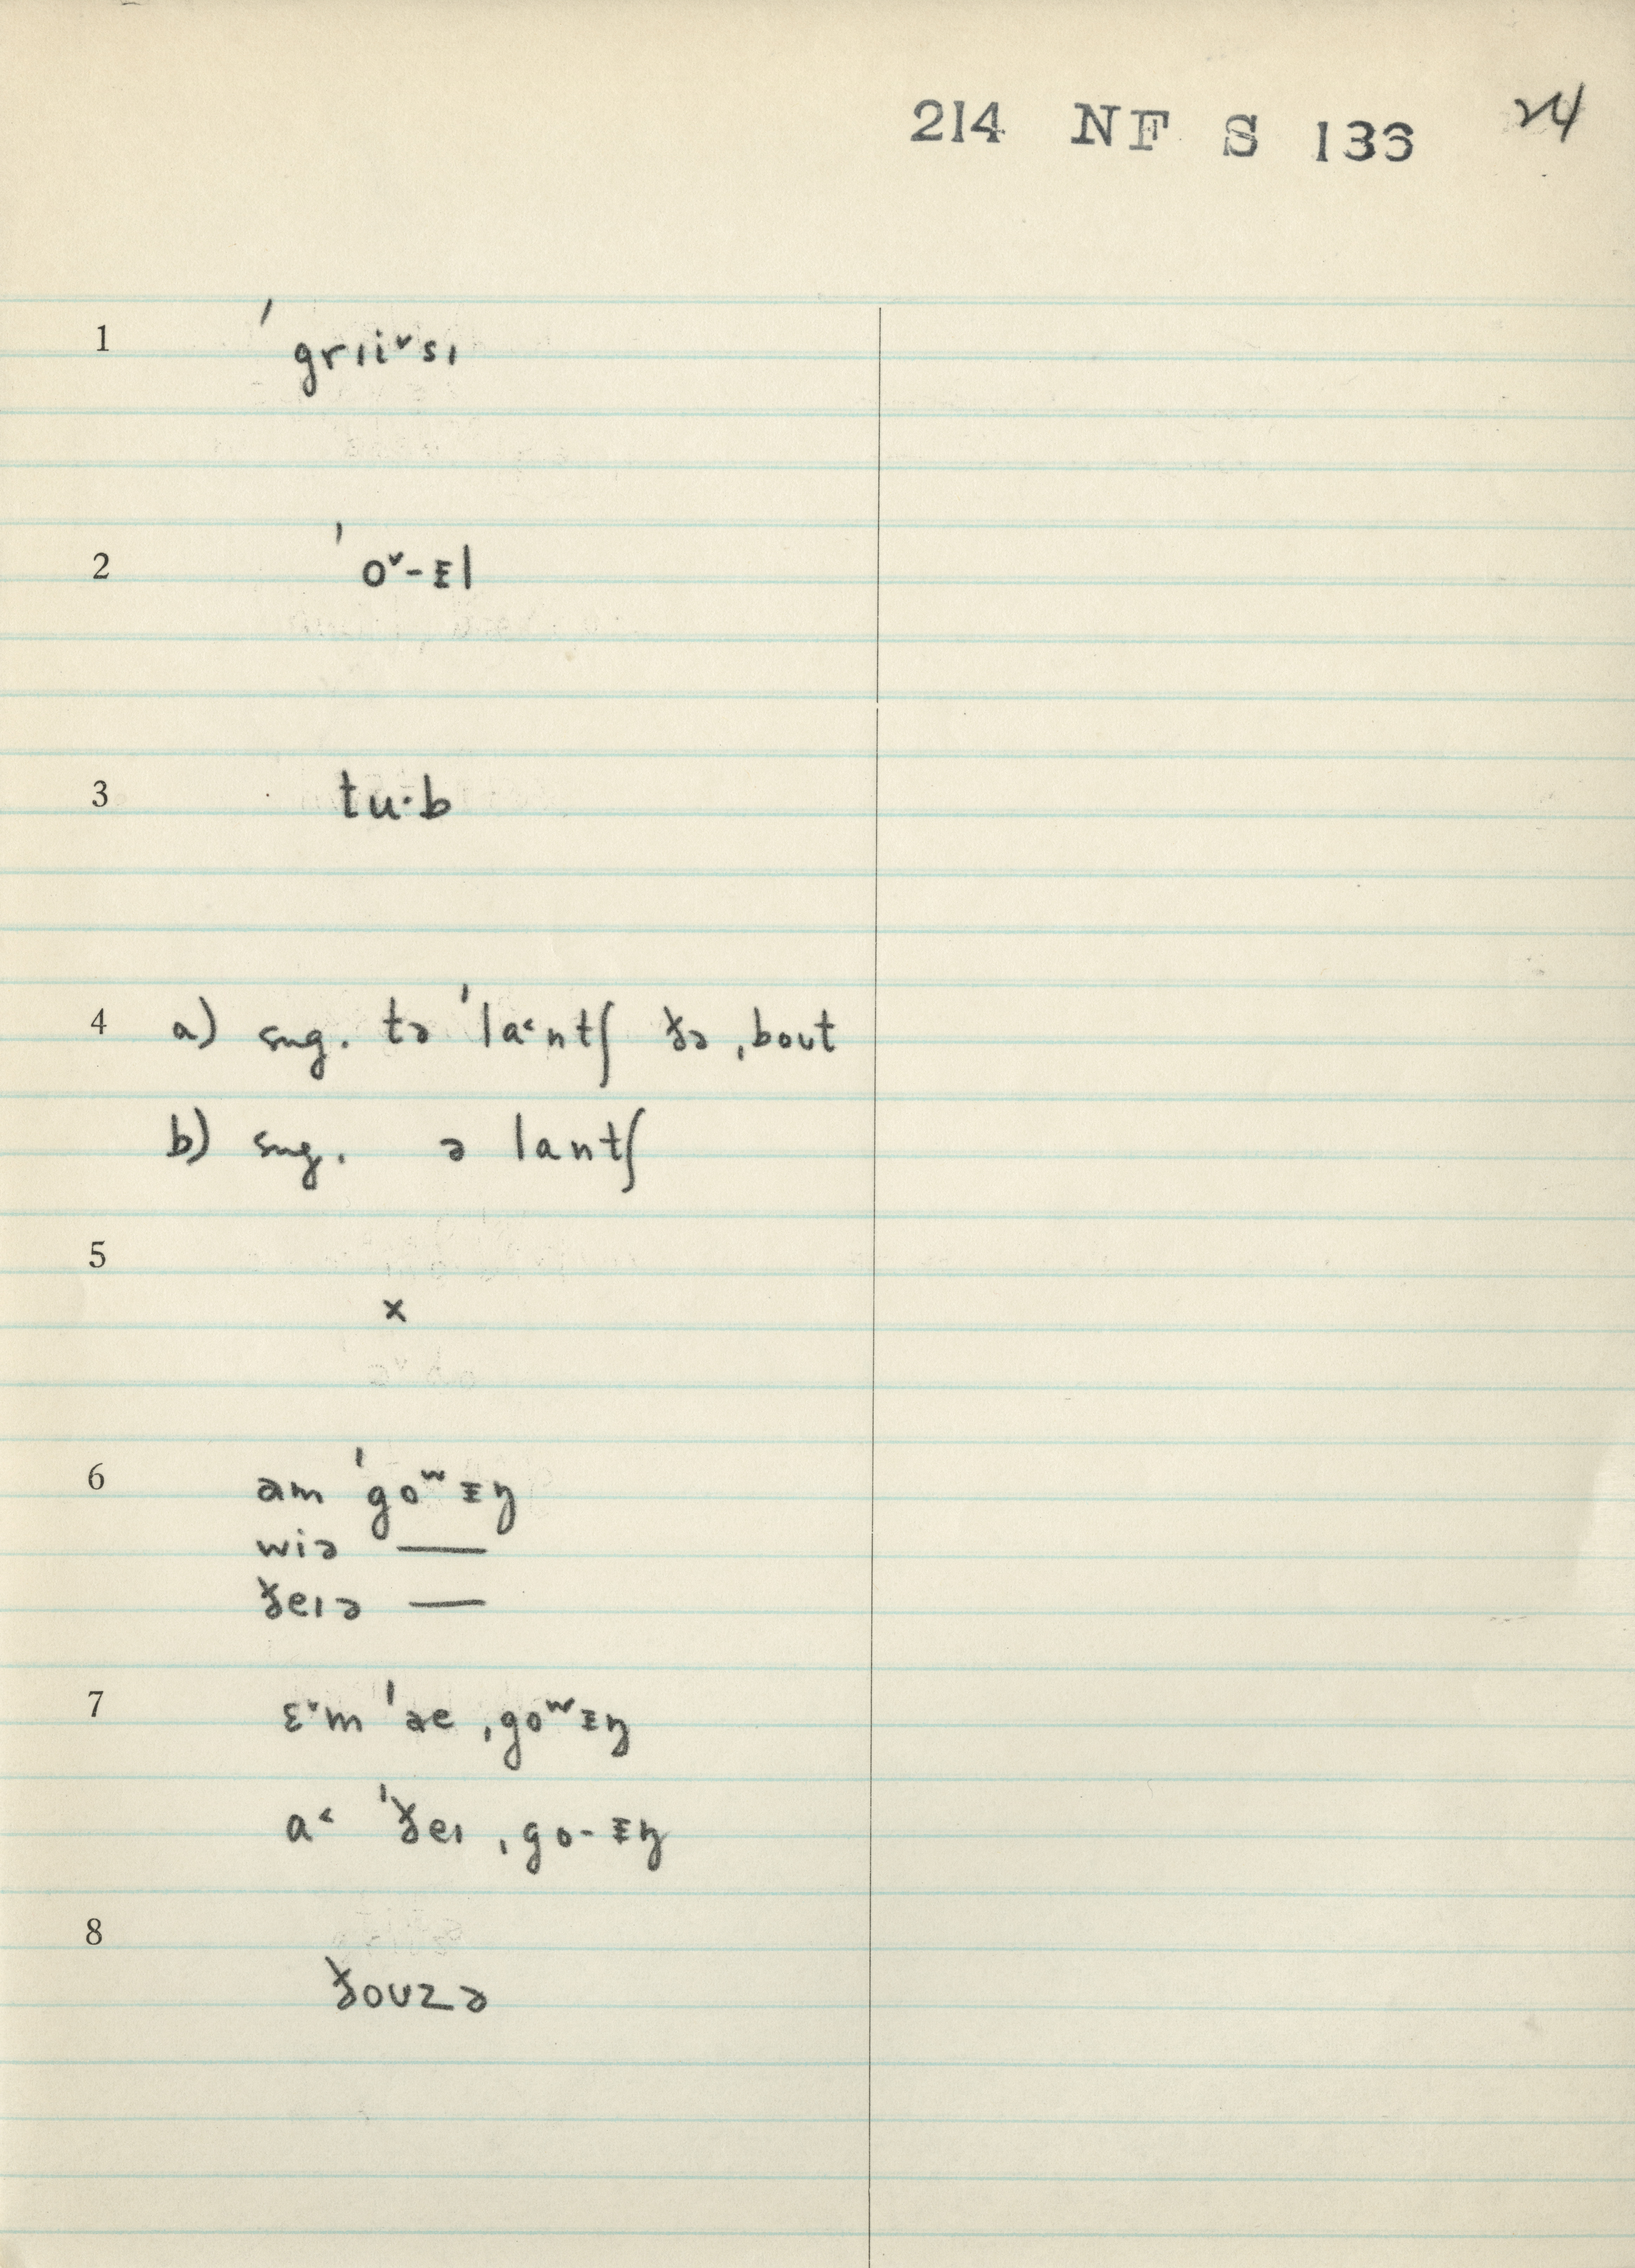 214 NF S 136 24
1 ˈgrɪi˅sɪ
2 ˈo˅-ᵻl
3 tu·b
4 a) sug. tə ˈla˂ntʃ ðə ˌboʊt
b) sug. ə lantʃ
5 x
6 am ˈgoʷᵻŋ
wiə —
ðeɪə —
7 ɛ˅m ˈæe ˌgoʷᵻŋ
a˂ ˈðeɪ ˌgo-ᵻŋ
8 ðoʊzə